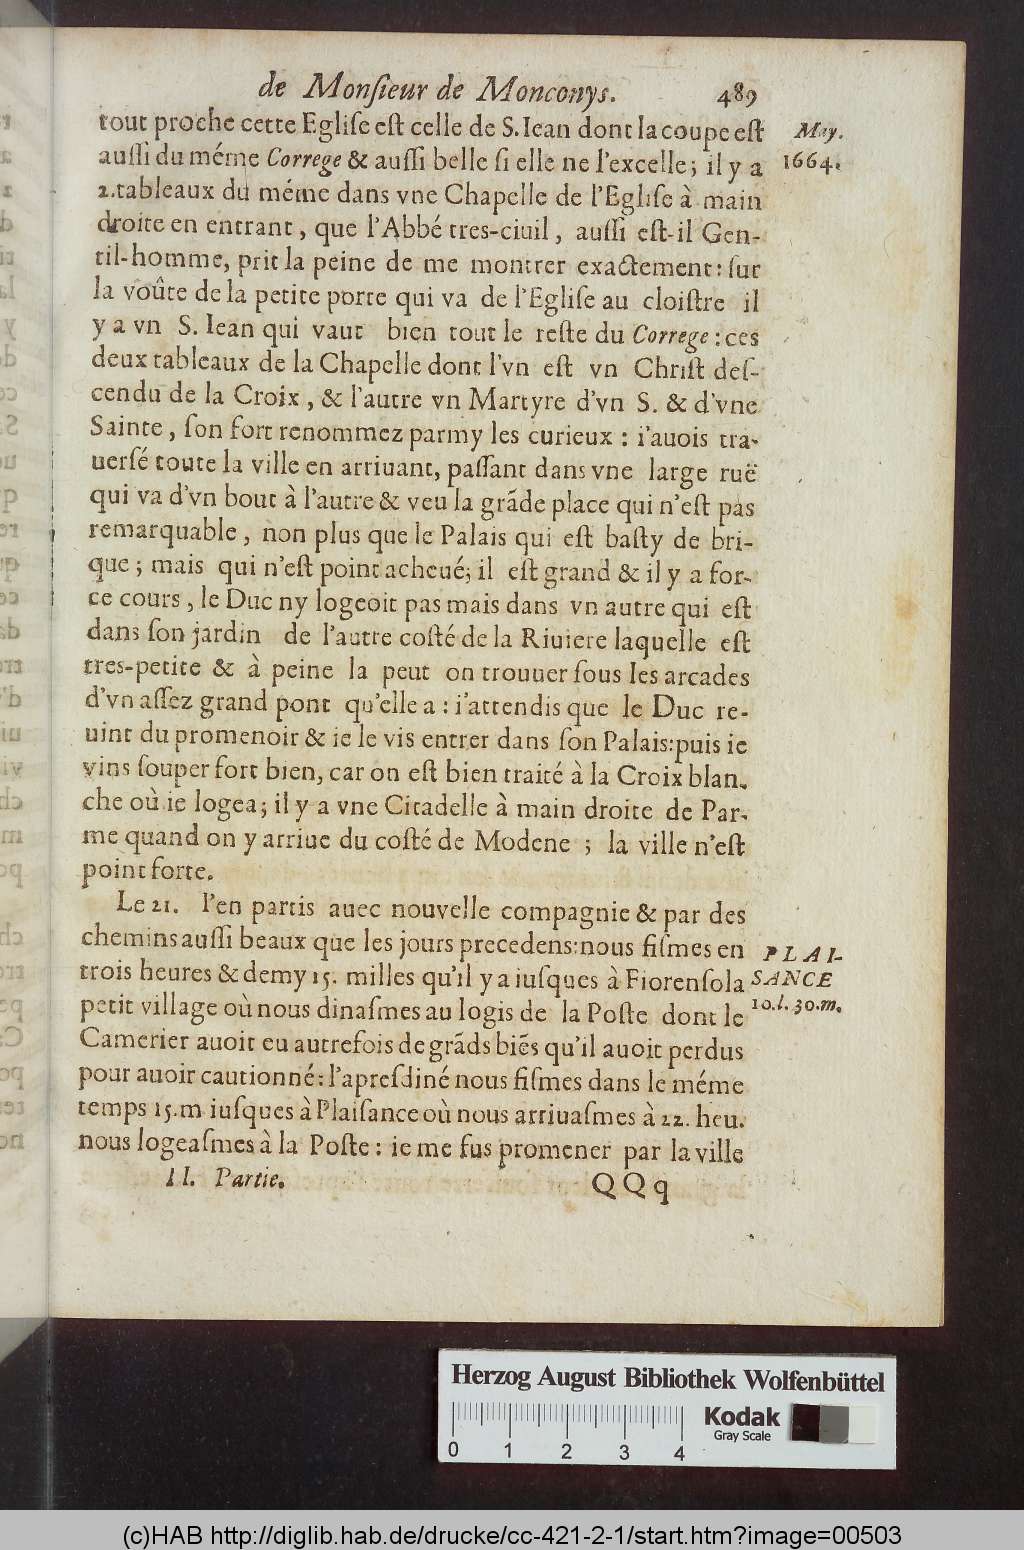 de Monſieur de Monconys. 489
tout proche cette Egliſe eſt celle de S. Iean dont la coupe eſt
May.
1664.
auſſi du méme Correge & auſſi belle ſi elle ne l'excelle; il y a
2. tableaux du méme dans vne Chapelle de l'Egliſe à main
droite en entrant, que l'Abbé tres-ciuil, auſſi eſt-il Gen-
til-homme, prit la peine de me montrer exactement: ſur
la voûte de la petite porte qui va de l'Egliſe au cloiſtre il
y a vn S. Iean qui vaut bien tout le reſte du Correge: ces
deux tableaux de la Chapelle dont l'vn eſt vn Chriſt deſ-
cendu de la Croix, & l'autre vn Martyre d'vn S. & d'vne
Sainte, ſon fort renommez parmy les curieux: i'auois tra-
uerſé toute la ville en arriuant, paſſant dans vne large ruë
qui va d'vn bout à l'autre & veu la grãde place qui n'eſt pas
remarquable, non plus que le Palais qui eſt baſty de bri-
que; mais qui n'eſt point acheué; il eſt grand & il y a for-
ce cours, le Duc ny logeoit pas mais dans vn autre qui eſt
dans ſon jardin de l'autre coſté de la Riuiere laquelle eſt
tres-petite & à peine la peut on trouuer ſous les arcades
d'vn aſſez grand pont qu'elle a: i'attendis que le Duc re-
uint du promenoir & ie le vis entrer dans ſon Palais: puis ie
vins ſouper fort bien, car on eſt bien traité à la Croix blan-
che où ie logea; il y a vne Citadelle à main droite de Par-
me quand on y arriue du coſté de Modene; la ville n'eſt
point forte.
Le 21. I'en partis auec nouvelle compagnie & par des
chemins auſſi beaux que les jours precedens: nous fiſmes en
trois heures & demy 15. milles qu'il y a iuſques à Fiorenſola
petit village où nous dinaſmes au logis de la Poſte dont le
PLAI-
SANCE
10. l. 30. m.
Camerier auoit eu autrefois de grãds biẽs qu'il auoit perdus
pour auoir cautionné: l'apreſdiné nous fiſmes dans le méme
temps 15. m iuſques à Plaiſance où nous arriuaſmes à 22. heu.
nous logeaſmes à la Poſte: ie me fus promener par la ville
II. Partie. QQq
Herzog August Bibliothek Wolfenbüttel
Kodak
Gray Scale
0 1 2 3 4
(c)HAB http://diglib.hab.de/drucke/cc-421-2-1/start.htm?image=00503